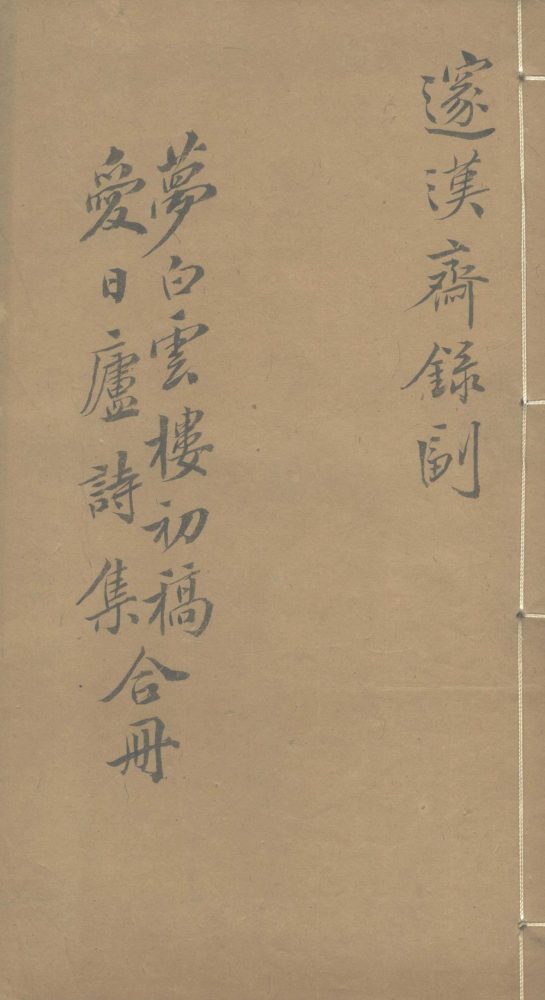 邃漢齋錄副
夢白雲樓初稿
愛日廬詩集
合冊